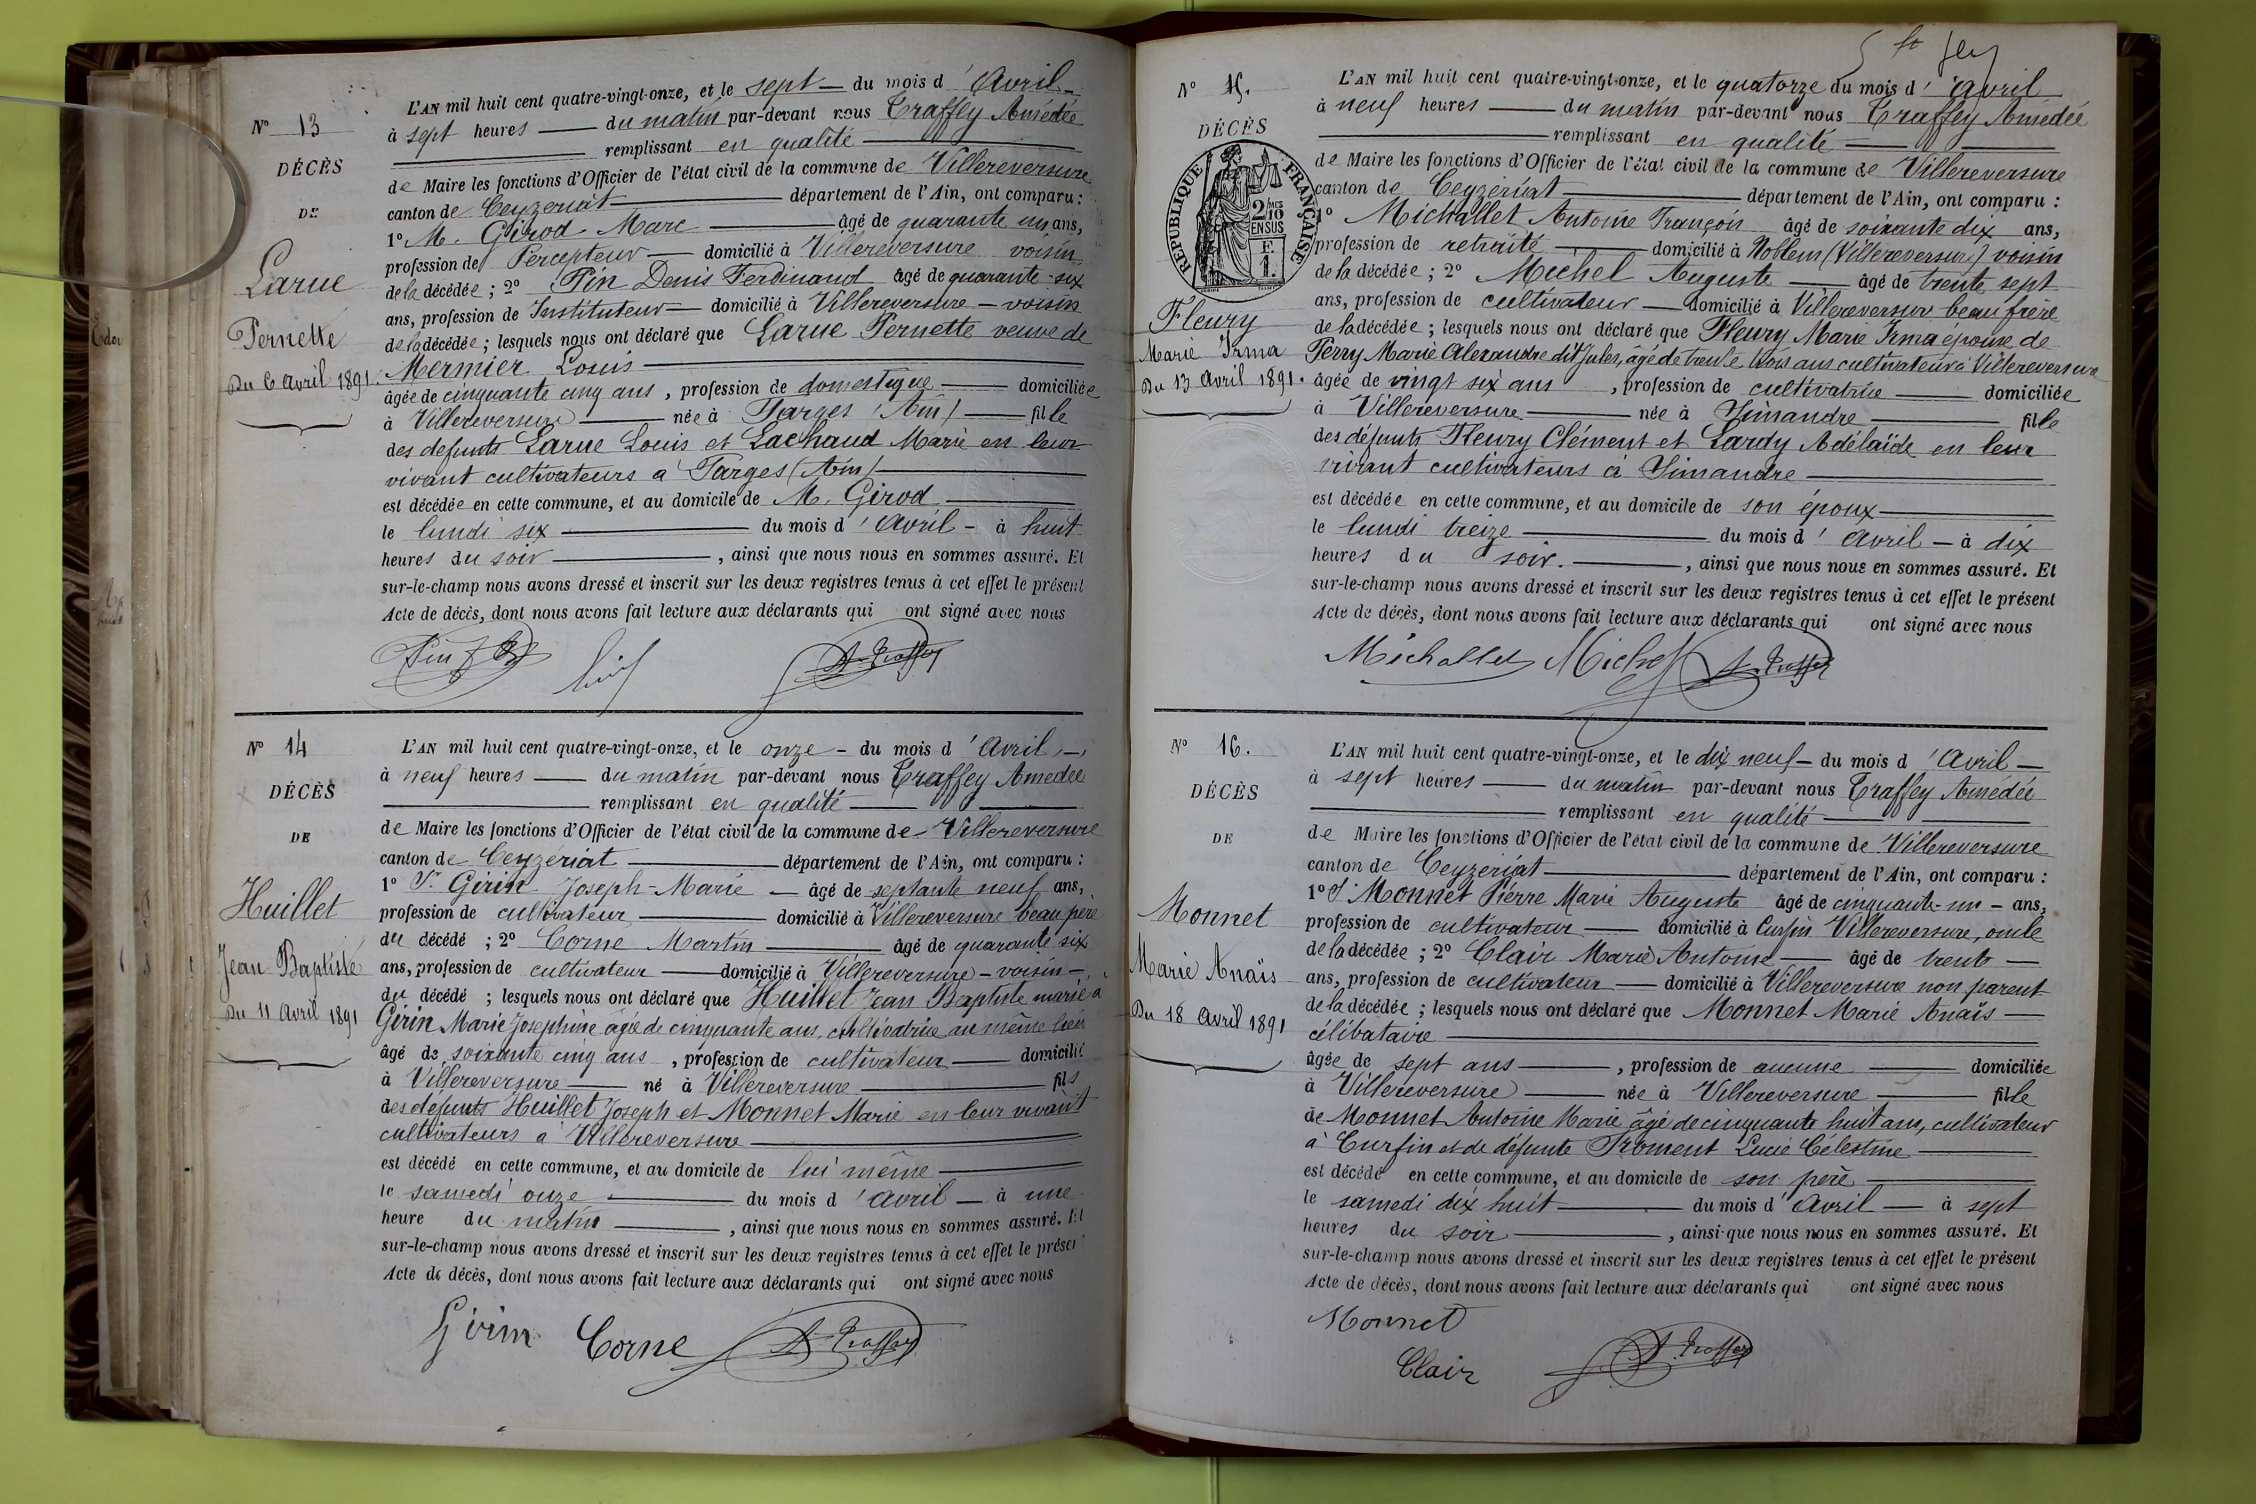 N° 13
DÉCÈS
DE
Larue
Pernette
Du 6 Avril 1891.
L'AN mil huit cent quatre-vingt-onze, et le sept du mois d'Avril
à sept heures du matin par-devant nous Traffey Amédée
remplissant en qualité
de Maire les fonctions d'Officier de l'état civil de la commune de Villereversure
canton de Ceyzeriat département de l'Ain, ont comparu :
1° M. Girod Marc âgé de quarante un ans,
profession de Percepteur domicilié à Villereversure voisin
de la décédée ; 2° Pin Denis Ferdinand âgé de quarante-six
ans, profession de Instituteur domicilié à Villereversure - voisin
de la décédée ; lesquels nous ont déclaré que Larue Pernette veuve de
Mermier Louis
âgée de cinquante cinq ans, profession de domestique domiciliée
à Villereversure née à Farges (Ain) fille
des défunts Larue Louis et Lachaud Marie en leur
vivant cultivateurs à Farges (Ain)
est décédée en cette commune, et au domicile de M. Girod
le lundi six du mois d'Avril - à huit
heures du soir, ainsi que nous nous en sommes assuré. Et
sur-le-champ nous avons dressé et inscrit sur les deux registres tenus à cet effet le présent
Acte de décès, dont nous avons fait lecture aux déclarants qui ont signé avec nous
A. Traffey
N° 14
DÉCÈS
DE
Huillet
Jean Baptiste
Du 11 Avril 1891
L'AN mil huit cent quatre-vingt-onze, et le onze - du mois d'Avril
à neuf heures du matin par-devant nous Traffey Amédée
remplissant en qualité
de Maire les fonctions d'Officier de l'état civil de la commune de Villereversure
canton de Ceyzériat département de l'Ain, ont comparu :
1° Sr Girin Joseph-Marie âgé de septante neuf ans,
profession de cultivateur domicilié à Villereversure beau père
du décédé ; 2° Corne Martin âgé de quarante six
ans, profession de cultivateur domicilié à Villereversure - voisin -
du décédé ; lesquels nous ont déclaré que Huillet Jean Baptiste marié à
Girin Marie Josephine âgée de cinquante ans, cultivatrice au même lieu
âgé de soixante cinq ans, profession de cultivateur domicilié
à Villereversure né à Villereversure fils
des défunts Huillet Joseph et Monnet Marie en leur vivant
cultivateurs à Villereversure
est décédé en cette commune, et au domicile de lui même
le samedi onze du mois d'Avril à une
heure du matin, ainsi que nous nous en sommes assuré. Et
sur-le-champ nous avons dressé et inscrit sur les deux registres tenus à cet effet le présent
Acte de décès, dont nous avons fait lecture aux déclarants qui ont signé avec nous
Girin Corne A. Traffey
N° 15.
DÉCÈS
RÉPUBLIQUE FRANÇAISE
2/10 EN SUS
F. 1.
Fleury
Marie Irma
Du 13 Avril 1891.
L'AN mil huit cent quatre-vingt-onze, et le quatorze du mois d'avril
à neuf heures du matin par-devant nous Traffey Amédée
remplissant en qualité
de Maire les fonctions d'Officier de l'état civil de la commune de Villereversure
canton de Ceyzériat département de l'Ain, ont comparu :
1° Michallet Antoine François âgé de soixante dix ans,
profession de retraité domicilié à Noblens (Villereversure) voisin
de la décédée ; 2° Michel Auguste âgé de trente sept
ans, profession de cultivateur domicilié à Villereversure beau frère
de la décédée ; lesquels nous ont déclaré que Fleury Marie Irma épouse de
Perry Marie Alexandre dit Jules, âgé de trente trois ans cultivateur à Villereversure
âgée de vingt six ans, profession de cultivatrice domiciliée
à Villereversure née à Simandre fille
des défunts Fleury Clément et Lardy Adélaïde en leur
vivant cultivateurs à Simandre
est décédée en cette commune, et au domicile de son époux
le lundi treize du mois d'Avril - à dix
heures du soir., ainsi que nous nous en sommes assuré. Et
sur-le-champ nous avons dressé et inscrit sur les deux registres tenus à cet effet le présent
Acte de décès, dont nous avons fait lecture aux déclarants qui ont signé avec nous
Michallet Michel A. Traffey
N° 16.
DÉCÈS
DE
Monnet
Marie Anaïs
Du 18 Avril 1891
L'AN mil huit cent quatre-vingt-onze, et le dix neuf - du mois d'Avril
à sept heures du matin par-devant nous Traffey Amédée
remplissant en qualité
de Maire les fonctions d'Officier de l'état civil de la commune de Villereversure
canton de Ceyzériat département de l'Ain, ont comparu :
1° S. Monnet Pierre Marie Auguste âgé de cinquante-un - ans,
profession de cultivateur domicilié à Curfin Villereversure, oncle
de la décédée ; 2° Clair Marie Antoine âgé de trente
ans, profession de cultivateur domicilié à Villereversure non parent
de la décédée ; lesquels nous ont déclaré que Monnet Marie Anaïs
célibataire
âgée de sept ans, profession de aucune domiciliée
à Villereversure née à Villereversure fille
de Monnet Antoine Marie âgé de cinquante huit ans, cultivateur
à Curfin et de défunte Froment Lucie Célestine
est décédé en cette commune, et au domicile de son père
le samedi dix huit du mois d'Avril à sept
heures du soir, ainsi que nous nous en sommes assuré. Et
sur-le-champ nous avons dressé et inscrit sur les deux registres tenus à cet effet le présent
Acte de décès, dont nous avons fait lecture aux déclarants qui ont signé avec nous
Monnet
Clair A. Traffey